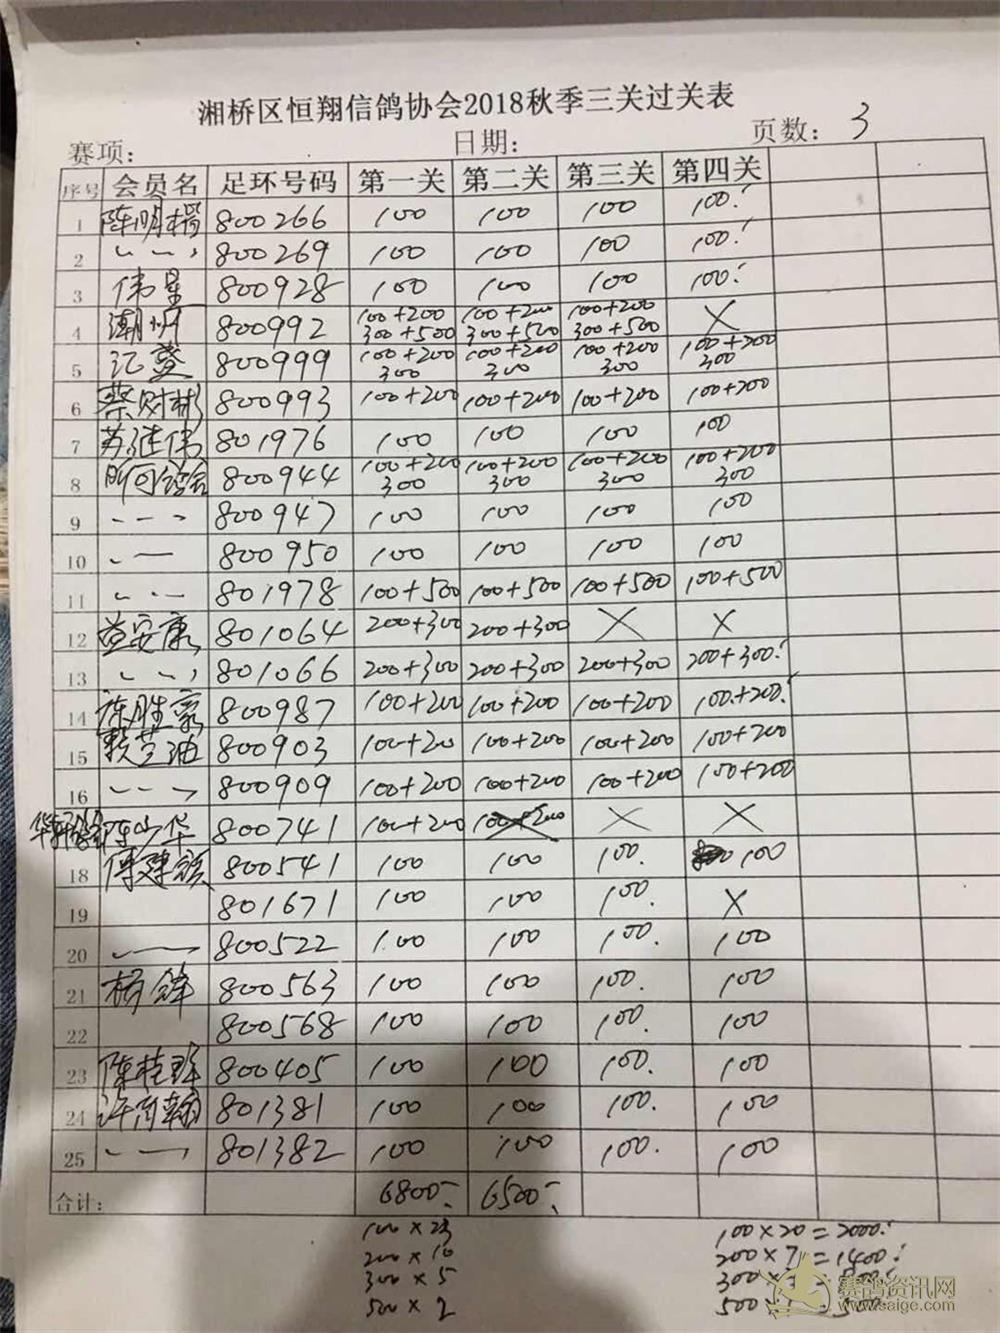 湘桥区恒翔信鸽协会2018秋季三关过关表
赛项: 日期: 页数: 3
序号 会员名 足环号码 第一关 第二关 第三关 第四关
1 陈明楷 800266 100 100 100 100
2 800269 100 100 100 100
3 伟星 800928 100 100 100 100
4 潮州 800992 100+200 300+500 100+200 300+500 100+200 300+500 ×
5 800999 100+200 300 100+200 300 100+200 300 100+200 300
6 蔡财彬 800993 100+200 100+200 100+200 100+200
7 苏继伟 801976 100 100 100 100
8 800944 100+200 300 100+200 300 100+200 300 100+200 300
9 800947 100 100 100 100
10 800950 100 100 100 100
11 801978 100+500 100+500 100+500 100+500
12 益安康 801064 200+300 200+300 × ×
13 801066 200+300 200+300 200+300 200+300
14 陈胜豪 800987 100+200 100+200 100+200 100+200
15 800903 100+200 100+200 100+200 100+200
16 800909 100+200 100+200 100+200 100+200
陈少华 800741 100+200 100+200 × ×
18 800541 100 100 100. 100
19 801671 100 100 100. ×
20 800522 100 100 100. 100
21 杨锋 800563 100 100 100. 100
22 800568 100 100 100. 100
23 800405 100 100 100. 100
24 801381 100 100 100. 100
25 801382 100 100 100. 100
合计: 6800 6500
100×23 100×20=2000
200×10 200×7=1400
300×5 300
500×2 500
赛鸽资讯网
www.saige.com